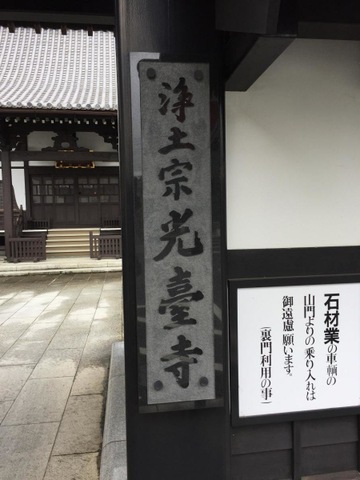 浄土宗光臺寺
石材業の車輌の
山門よりの乗り入れは
御遠慮願います。
(裏門利用の事)